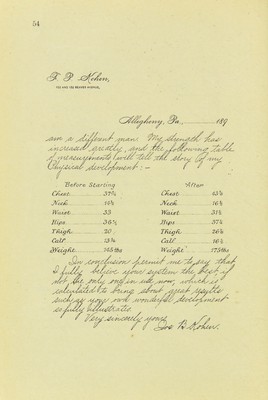 54
F. P. Kohen,
Allegheny, Pa., 189
am a different man. My strength has
increased greatly, and the following table
of measurements will tell the story of my
Physical development:-
Before Starting After
Chest Chest
Neck Neck
Waist 33 Waist
Hips Hips
Thigh 20 Thigh
Calf Calf
Weight Weight
In conclusion permit me to say that
I fully believe your system the best if
not the only one in use now, which is
calculated to bring about great results
such as your own wonderful development
so fully illustrates
Very sincerely yours
Jos B. Kohen.